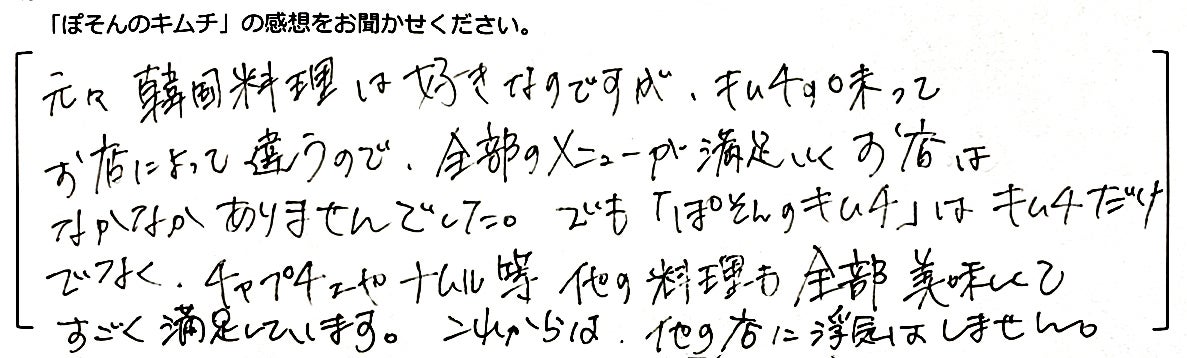 「ぽそんのキムチ」の感想をお聞かせください。
元々韓国料理は好きなのですが、キムチの味って
お店によって違うので、全部のメニューが満足いくお店は
なかなかありませんでした。でも「ぽそんのキムチ」はキムチだけ
でなく、チャプチェやナムル等他の料理も全部美味しくて
すごく満足しています。これからは、他の店に浮気はしません。